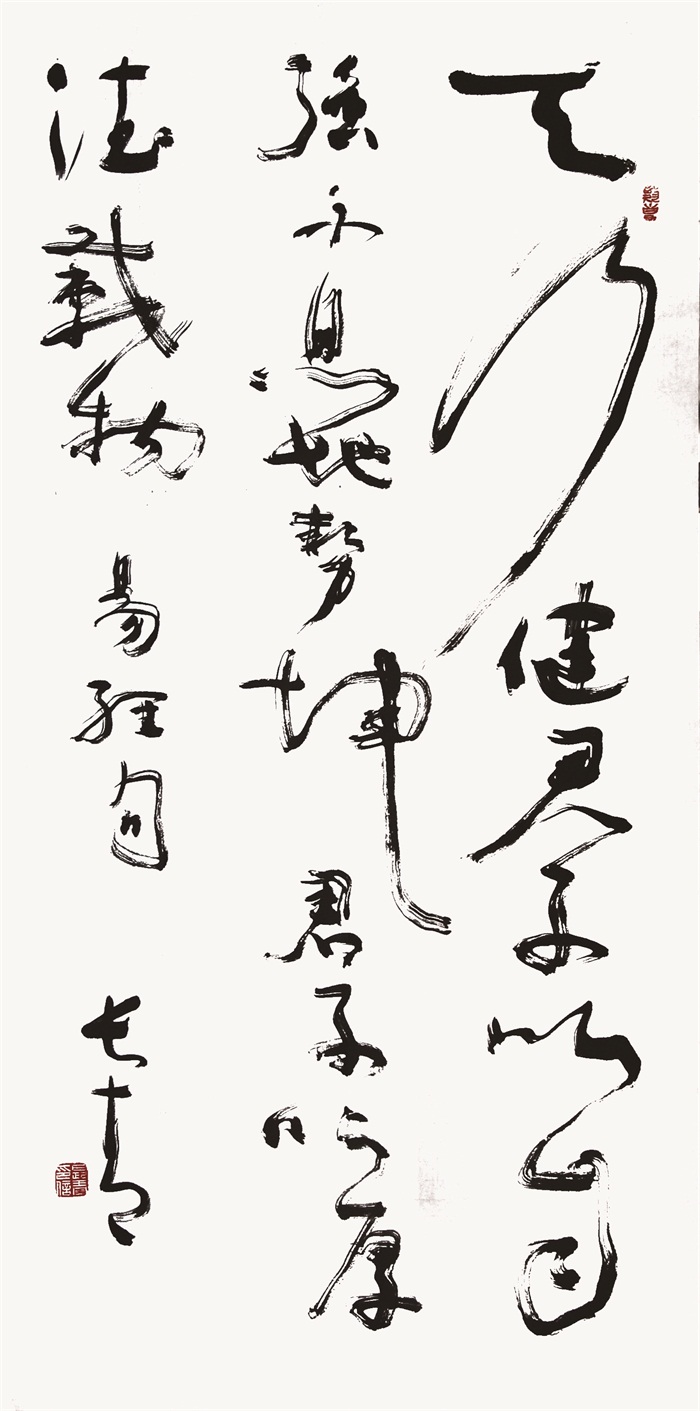 天行健君子以自
强不息地势坤君子以厚
德载物 易经句 长青